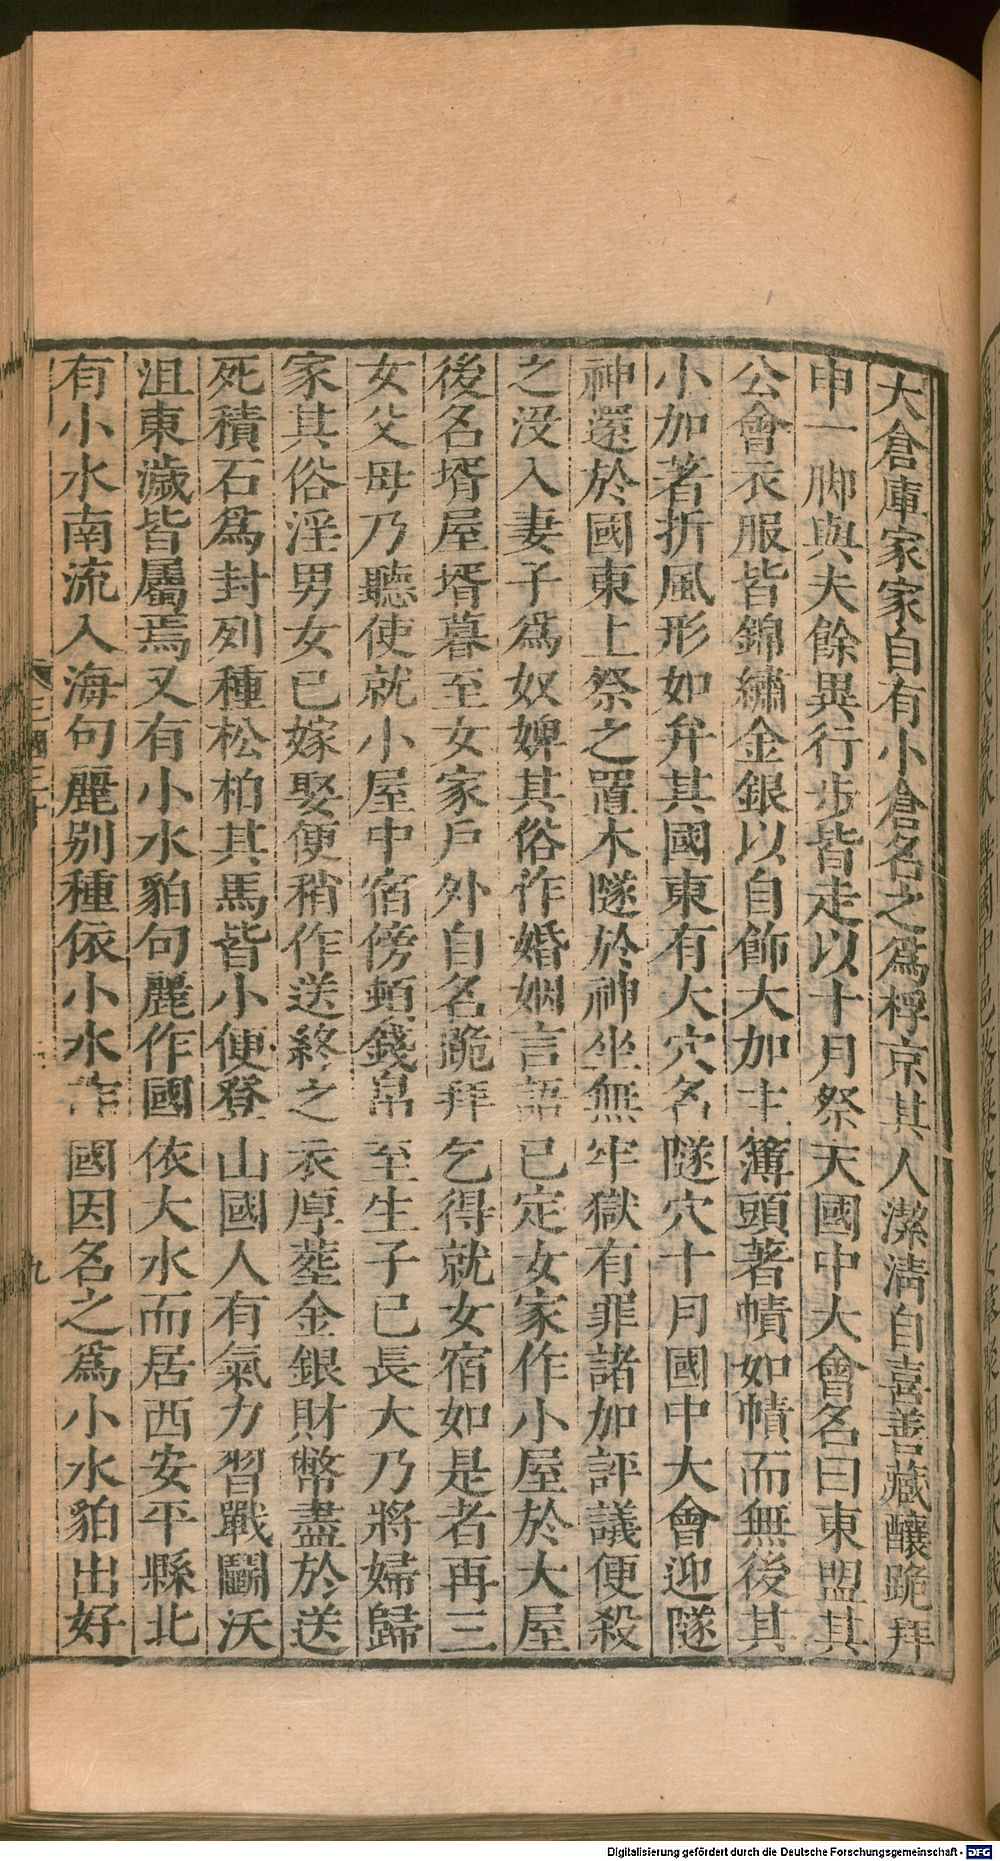 大倉庫家家自有小倉名之為桴京其人潔淸自喜善藏釀跪拜
申一脚與夫餘異行步皆走以十月祭天國中大會名曰東盟其
公會衣服皆錦繡金銀以自飾大加主簿頭著幘如幘而無後其
小加著折風形如弁其國東有大穴名隧穴十月國中大會迎隧
神還於國東上祭之置木隧於神坐無牢獄有罪諸加評議便殺
之沒入妻子爲奴婢其俗作婚姻言語已定女家作小屋於大屋
後名壻屋壻暮至女家戶外自名跪拜乞得就女宿如是者再三
女父母乃聽使就小屋中宿傍頓錢帛至生子已長大乃將婦歸
家其俗淫男女已嫁娶便稍作送終之衣厚葬金銀財幣盡於送
死積石爲封列種松柏其馬皆小便登山國人有氣力習戰鬭沃
沮東濊皆屬焉又有小水貊句麗作國依大水而居西安平縣北
有小水南流入海句麗别種依小水作國因名之爲小水貊出好
九
Digitalisierung gefördert durch die Deutsche Forschungsgemeinschaft - DFG